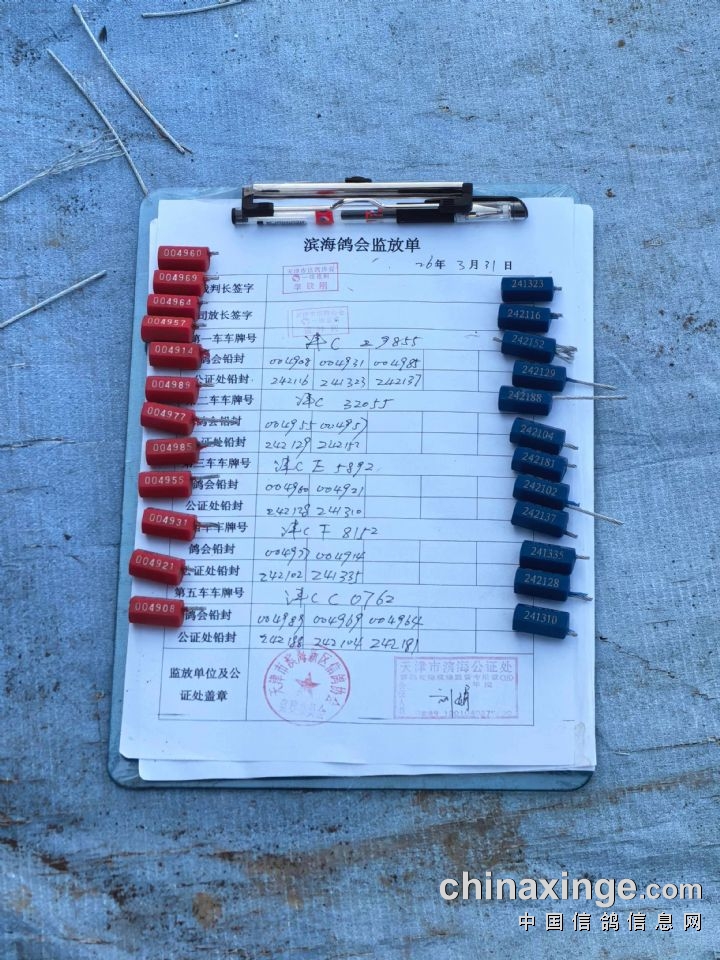 滨海鸽会监放单
26年 3月31日
天津市信鸽协会
一级裁判
004960
裁判长签字
241323
004969
004964
司放长签字
242116
004957
第一车车牌号 津C 29855
242152
004914
鸽会铅封 004908 004931 004985
242129
公证处铅封 242116 241323 242137
004989
第二车车牌号 津C 32055
242188
004977
鸽会铅封 004955 004957
242104
公证处铅封 242129 242152
004985
第三车车牌号 津C E 5892
242181
004955
鸽会铅封 004960 004921
242102
公证处铅封 242128 241310
004931
车车牌号 津C F 8152
242137
鸽会铅封 004977 004914
241335
004921
公证处铅封 242102 241335
242128
第五车车牌号 津C C 0762
004908
鸽会铅封 004989 004969 004964
241310
公证处铅封 242188 242104 242181
监放单位及公证处盖章
天津市滨海新区信鸽协会
天津市滨海公证处
chinaxinge.com
中国信鸽信息网